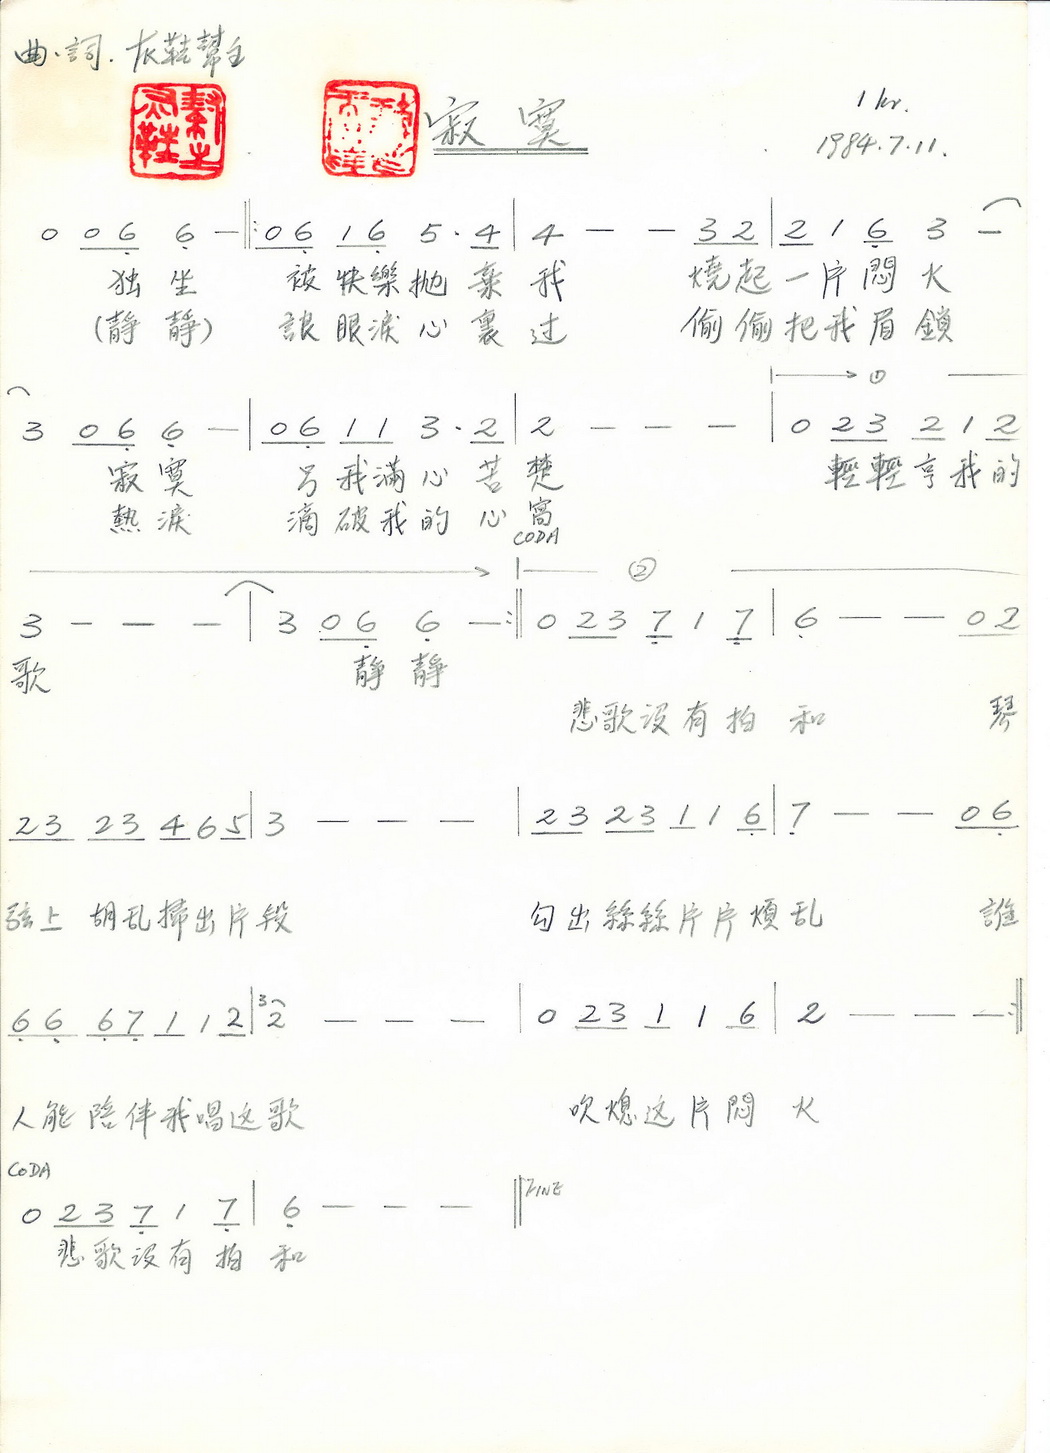 曲·詞. 灰鞋幫主
寂寞
1 hr.
1984.7.11.
0 0 6 6 — ‖: 0 6 1 6 5 · 4 | 4 — — 3 2 | 2 1 6 3 —
独坐 被快樂抛棄我 燒起一片悶火
(静静) 誏眼淚心裏过 偷偷把我眉鎖
|→ ①
3 0 6 6 — | 0 6 1 1 3 · 2 | 2 — — — | 0 2 3 2 1 2
寂寞 另我滿心苦楚 輕輕亨我的
熱淚 滴破我的心窩
CODA
→ |— ② —
3 — — — | 3 0 6 6 — :‖ 0 2 3 7 1 7 | 6 — — 0 2
歌 静静
悲歌没有拍和 琴
2 3 2 3 4 6 5 | 3 — — — | 2 3 2 3 1 1 6 | 7 — — 0 6
弦上胡乱掃出片段 勾出絲絲片片煩乱 誰
6 6 6 7 1 1 2 | 3 2 — — — | 0 2 3 1 1 6 | 2 — — — :‖
人能陪伴我唱这歌 吹熄这片悶火
CODA
0 2 3 7 1 7 | 6 — — — ‖ FINE
悲歌没有拍和